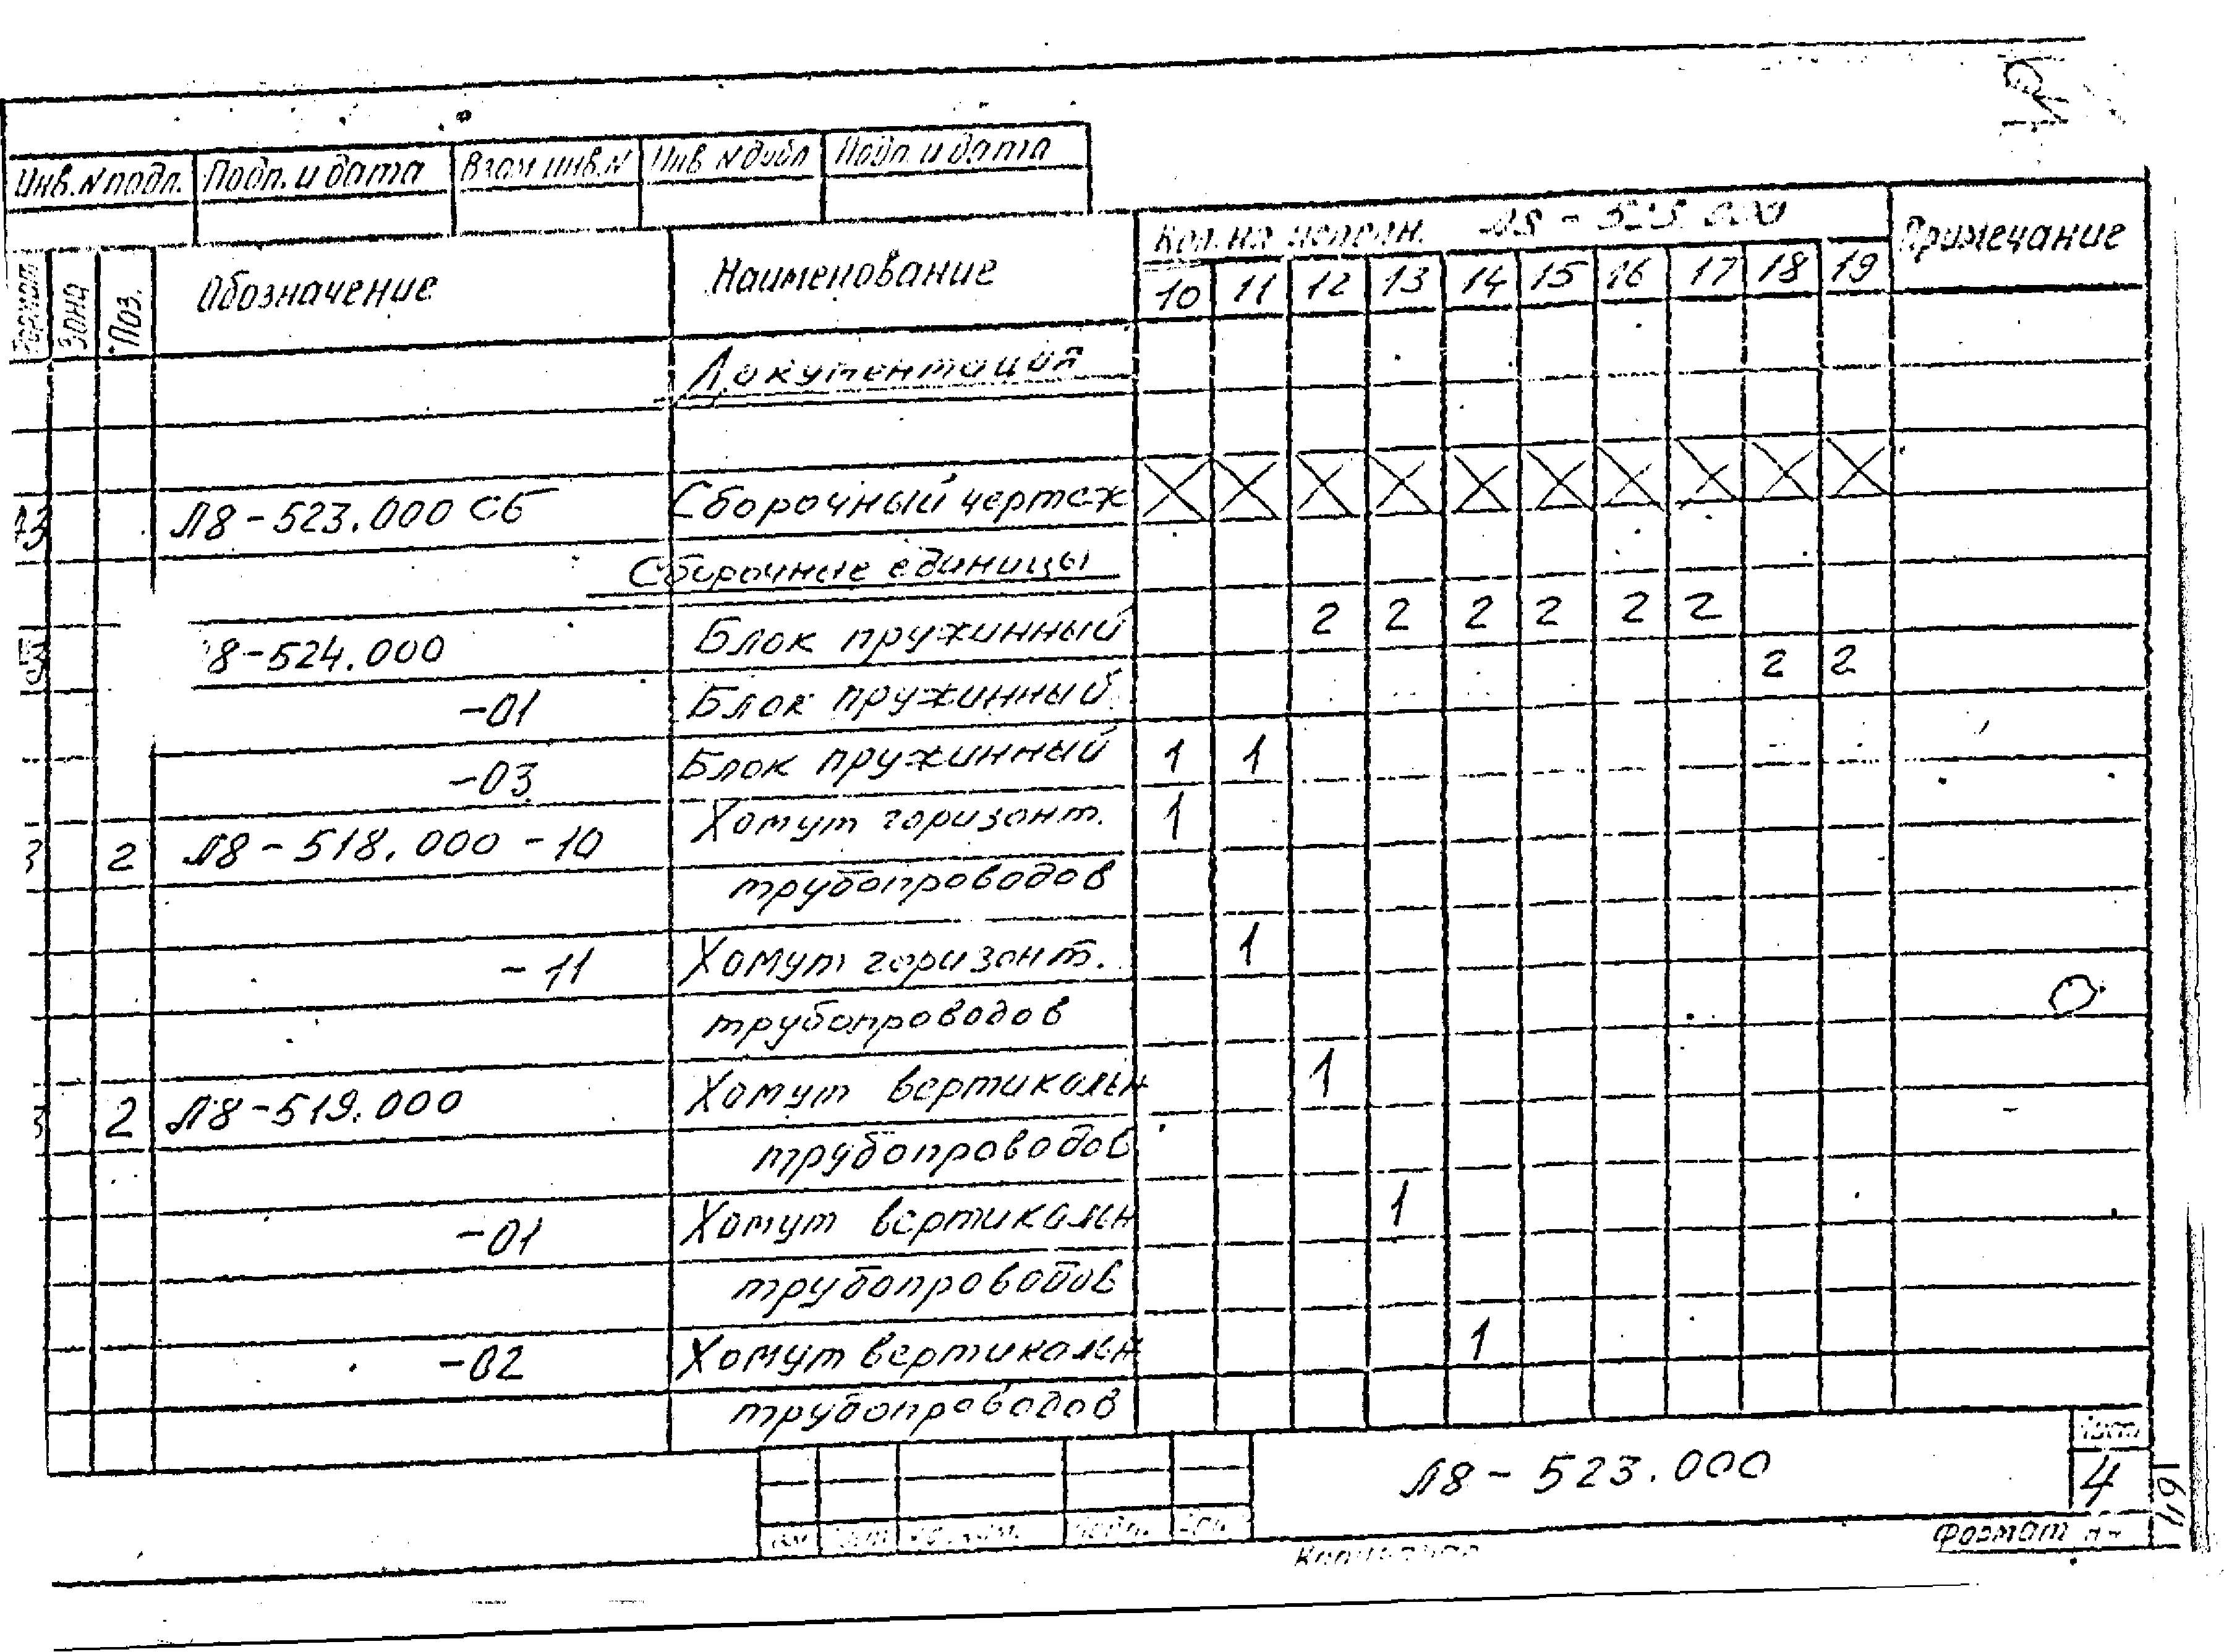 Инв. N подл. Подп. и дата Взам инв. N Инв N дубл Подп. и дата
Формат Зона Поз. Обозначение Наименование Кол. на исполн. Л8-523.000 Примечание
10 11 12 13 14 15 16 17 18 19
Документация
Л8-523.000 СБ Сборочный чертеж
Сборочные единицы
8-524.000 Блок пружинный 2 2 2 2 2 2
-01 Блок пружинный 2 2
-03 Блок пружинный 1 1
3 2 Л8-518.000-10 Хомут горизонт. 1
трубопроводов
-11 Хомут горизонт. 1
трубопроводов
3 2 Л8-519.000 Хомут вертикальн 1
трубопроводов
-01 Хомут вертикальн 1
трубопроводов
-02 Хомут вертикальн 1
трубопроводов
Л8-523.000
Лист
4
Копировал
Формат